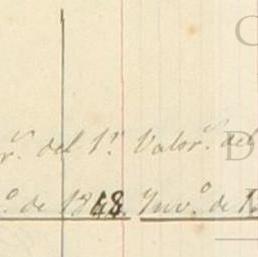 r.º del 1.º Valor.º del
.º de 1848. Ynv.º de 1